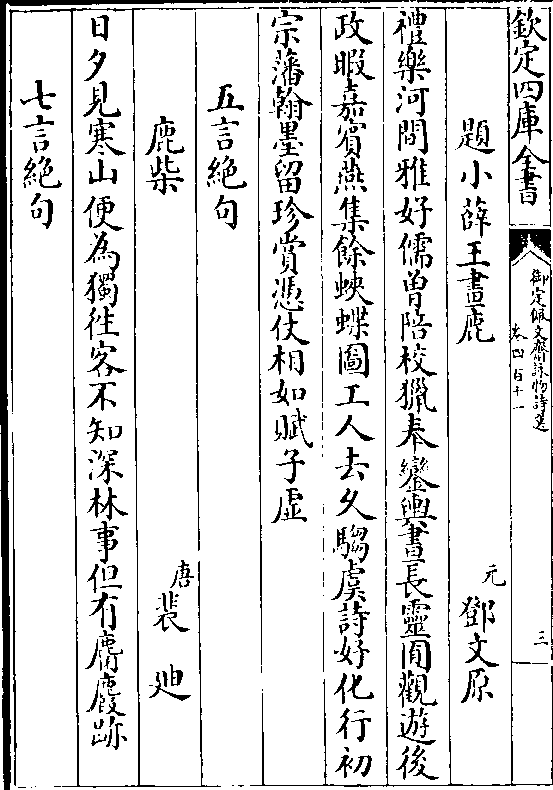 欽定四庫全書
御定佩文齋詠物詩選
卷四百十一
三
題小薛王畫鹿
元 鄧文原
禮樂河間雅好儒曽陪校獵奉鑾輿書長靈囿觀遊後
政暇嘉賓燕集餘蛺蝶圖工人去久騶虞詩好化行初
宗藩翰墨留珍賞憑仗相如賦子虚
五言絶句
鹿柴
唐 裴迪
日夕見寒山便為獨往客不知深林事但有麏麚跡
七言絶句